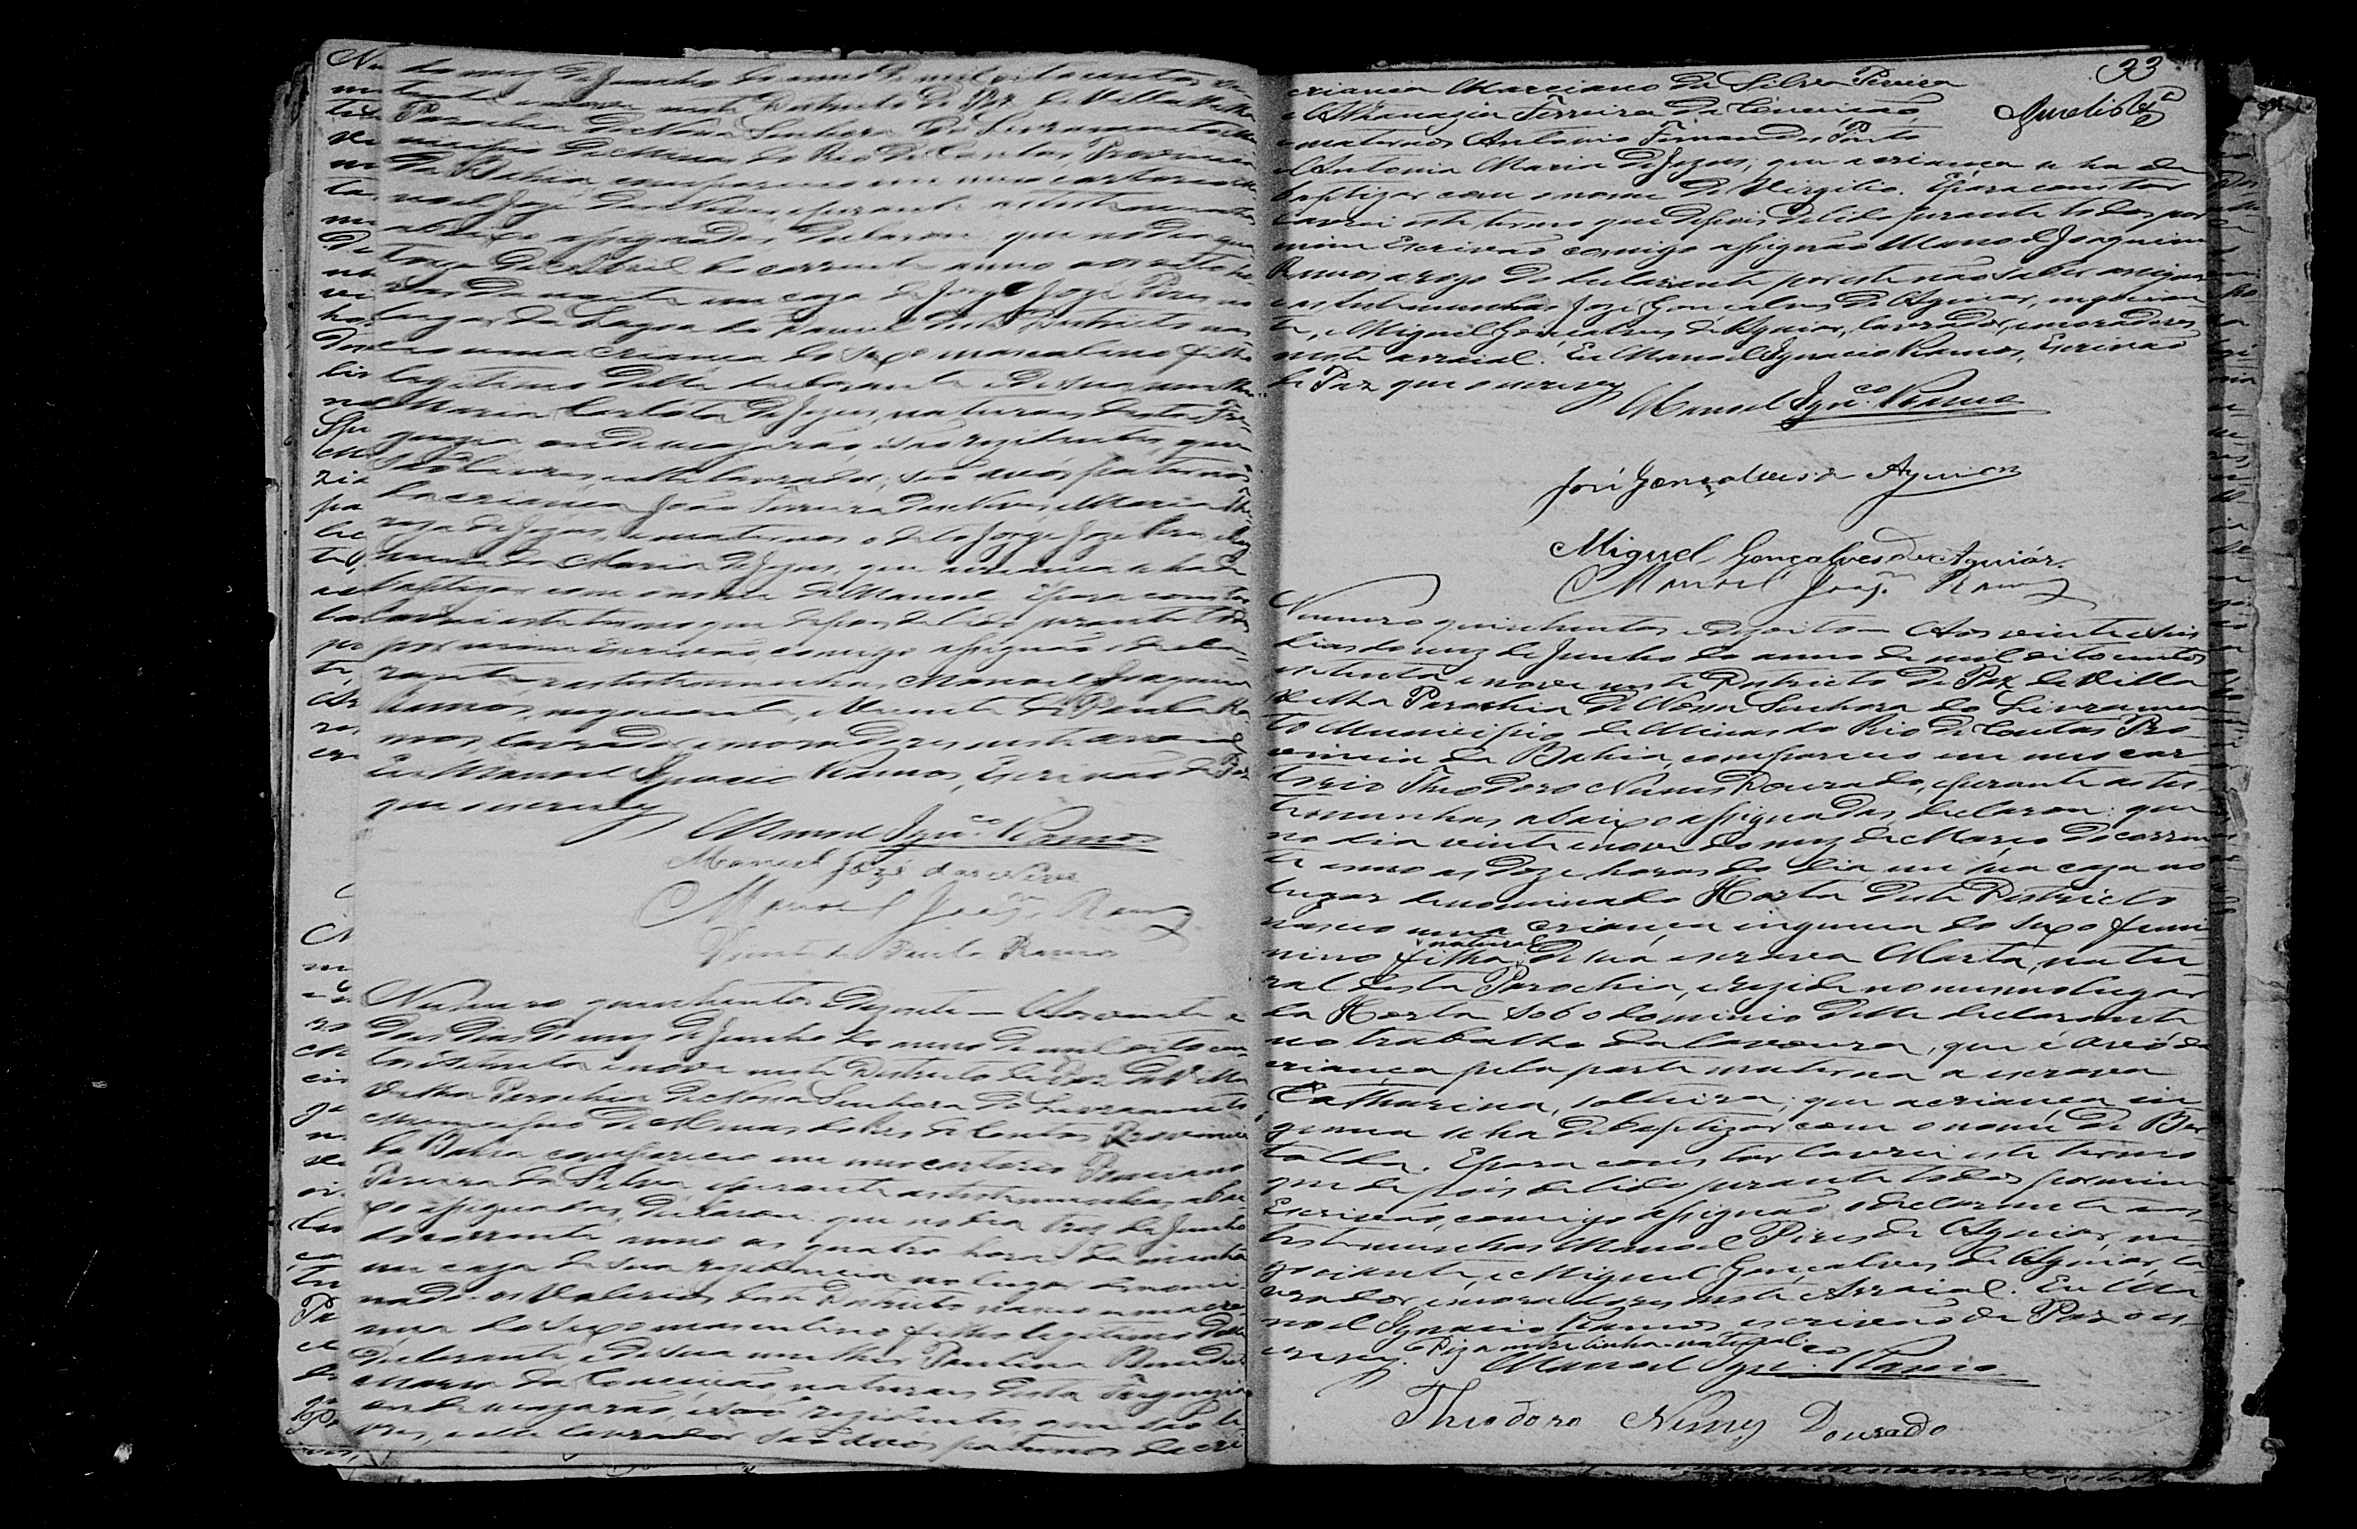 do mez de Junho do anno de mil oito centos se
tenta e nove neste Districto de Paz de Villa Velha
Parochia de Nossa Senhora do Livramento Mu
nicipio de Minas do Rio de Contas, Provincia
da Bahia, compareceu em meu cartorio Ma
noel José das Neves, e perante as testemunhas
abaixo assignadas, declarou: que no dia
de Abril do corrente anno as oito ho
ras da noite em caza de Jorge José Pires no
lugar da Lagoa do deste Districto nas
ceo uma criança do sexo masculino, filho
legitimo delle declarante e de sua mulher
Maria Carlota de Jezus, naturaes desta Fre
guezia, onde cazarão, e são rezidentes, que
são livres, e elle lavrador; são avós paternos
da criança João Ferreira das Neves, e Maria
roza de Jezus, e maternos o dito Jorge José Pires, e
Maria de Jezus, que a criança se ha de
baptizar com o nome de Manoel. E para constar
lavrei este termo que depois de lido perante todos
por mim Escrivão, comigo assignão o decla
rante, e as testemunhas Manoel Joaquim
Ramos, negociante, e Vicente de Paula Ra
mos, lavrador, e moradores neste arraial
Eu Manoel Ignacio Ramos, Escrivão de Paz
que o escrevy
Manoel Igncº. Ramos
Manoel José das Neves
Manoel Joaqm. Ramos
Vicente de Paula Ramos
Numero quinhentos dezesete — Aos vinte e
dous dias do mez de Junho do anno de mil oito cen
tos setenta e nove neste Districto de Paz de Villa
Velha Parochia de Nossa Senhora do Livramento
Municipio de Minas do Rio de Contas Provincia
da Bahia compareceo em meu cartorio
Pereira da Silva e perante as testemunhas abai
xo assignadas, declarou: que no dia tres de Junho
do corrente anno as quatro horas da
em caza de sua rezidencia no lugar denomi
nado os Valerios deste Districto nasceo uma cri
ança do sexo masculino, filho legitimo delle
declarante, e de sua mulher Paulina
Maria da Conceição, naturaes desta Freguezia
onde cazarão, e são rezidentes, que são li
vres, e elle lavrador são avós paternos da cri
33
criança Marciano da Silva Pereira
e Athanazia Ferreira da Conceição,
e maternos Antonio Fernandes Pinto
e Antonia Maria de Jezus; que a criança se ha de
baptizar com o nome de Virgilio. E para constar
lavrei este termo que depois de lido perante todos por
mim Escrivão comigo assignão Manoel Joaquim
Ramos a rogo do declarante por este não saber assignar
e as testemunhas José Gonçalves de Aguiar, negocian
te, e Miguel Gonçalves de Aguiar, lavrador, e moradores
neste arraial. Eu Manoel Ignacio Ramos, Escrivão
de Paz que o escrevy
Manoel Igncº. Ramos
José Gonçalves de Aguiar
Miguel Gonçalves de Aguiár.
Manoel Joaqm. Ramos
Numero quinhentos e dezoito — Aos vinte e seis
dias do mez de Junho do anno de mil oito centos
setenta e nove neste Districto de Paz de Villa
Velha Parochia de Nossa Senhora do Livramen
to Municipio de Minas do Rio de Contas Pro
vincia da Bahia, compareceo em meu car
torio Theodoro Nunes Dourado, e perante as tes
temunhas abaixo assignadas, declarou: que
no dia vinte e nove do mez de Março do corren
te anno as doze horas do dia, em sua caza no
lugar denominado Horta deste Districto
nasceo uma criança ingenua do sexo femi
nino, filha natural de sua escrava Marta, natu
ral desta Parochia, e rezide no mesmo lugar
da Horta sob o dominio delle declarante
no trabalho da lavoura, que é avó da
criança pela parte materna a escrava
Catharina, solteira; que a criança in
genua se ha de baptizar com o nome de Ber
tolda. E para constar lavrei este termo
que depois de lido perante todos por mim
Escrivão, comigo assignão o declarante e as
testemunhas Manoel Pires de Aguiar, ne
gociante, e Miguel Gonçalves de Aguiar, la
vrador, e moradores neste Arraial. Eu Ma
noel Ignacio Ramos, escrivão de Paz o es
crevy. Digo na entrelinha — natural
Manoel Igncº. Ramos
Theodoro Nunes Dourado